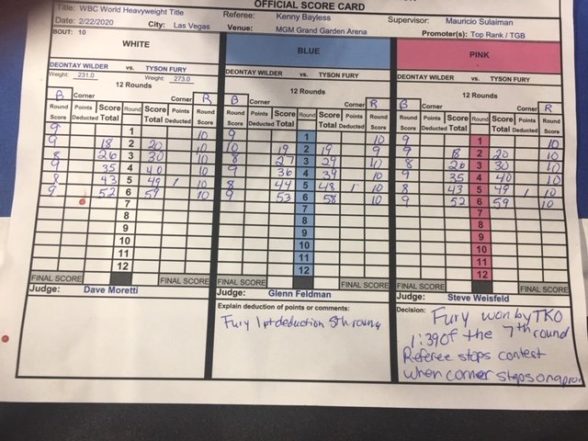 OFFICIAL SCORE CARD
Title: WBC World Heavyweight Title Referee: Kenny Bayless Supervisor: Mauricio Sulaiman
Date: 2/22/2020 City: Las Vegas Venue: MGM Grand Garden Arena Promoter(s): Top Rank / TGB
BOUT: 10
WHITE BLUE PINK
DEONTAY WILDER vs. TYSON FURY DEONTAY WILDER vs. TYSON FURY DEONTAY WILDER vs. TYSON FURY
Weight: 231.0 Weight: 273.0
12 Rounds 12 Rounds 12 Rounds
B Corner Corner R B Corner Corner R B Corner Corner R
Round Score Points Deducted Score Total Round Score Total Points Deducted Round Score Round Score Points Deducted Score Total Round Score Total Points Deducted Round Score Round Score Points Deducted Score Total Round Score Total Points Deducted Round Score
9 1 10 9 1 10 9 1 10
9 18 2 20 10 10 19 2 19 9 9 18 2 20 10
8 26 3 30 10 8 27 3 29 10 8 26 3 30 10
9 35 4 40 10 9 36 4 39 10 9 35 4 40 10
8 43 5 49 1 10 8 44 5 48 1 10 8 43 5 49 1 10
9 52 6 59 10 9 53 6 58 10 9 52 6 59 10
7 7 7
8 8 8
9 9 9
10 10 10
11 11 11
12 12 12
FINAL SCORE FINAL SCORE FINAL SCORE FINAL SCORE FINAL SCORE FINAL SCORE
Judge: Dave Moretti Judge: Glenn Feldman Judge: Steve Weisfeld
Explain deduction of points or comments:
Fury 1 pt deduction 5th round
Decision: Fury won by TKO
1:39 of the 7th round
Referee stops contest
when corner steps on apron